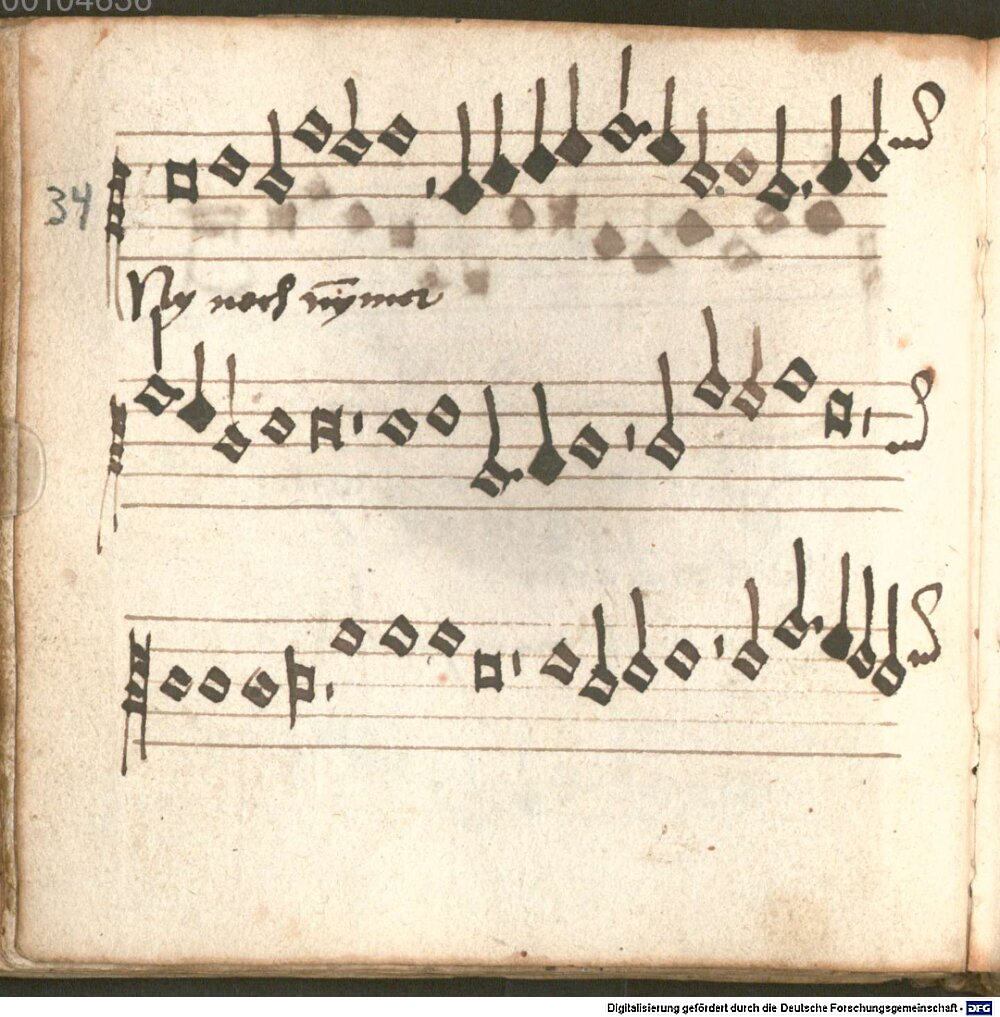 00104636
34
Ny noch nymer
Digitalisierung gefördert durch die Deutsche Forschungsgemeinschaft - DFG